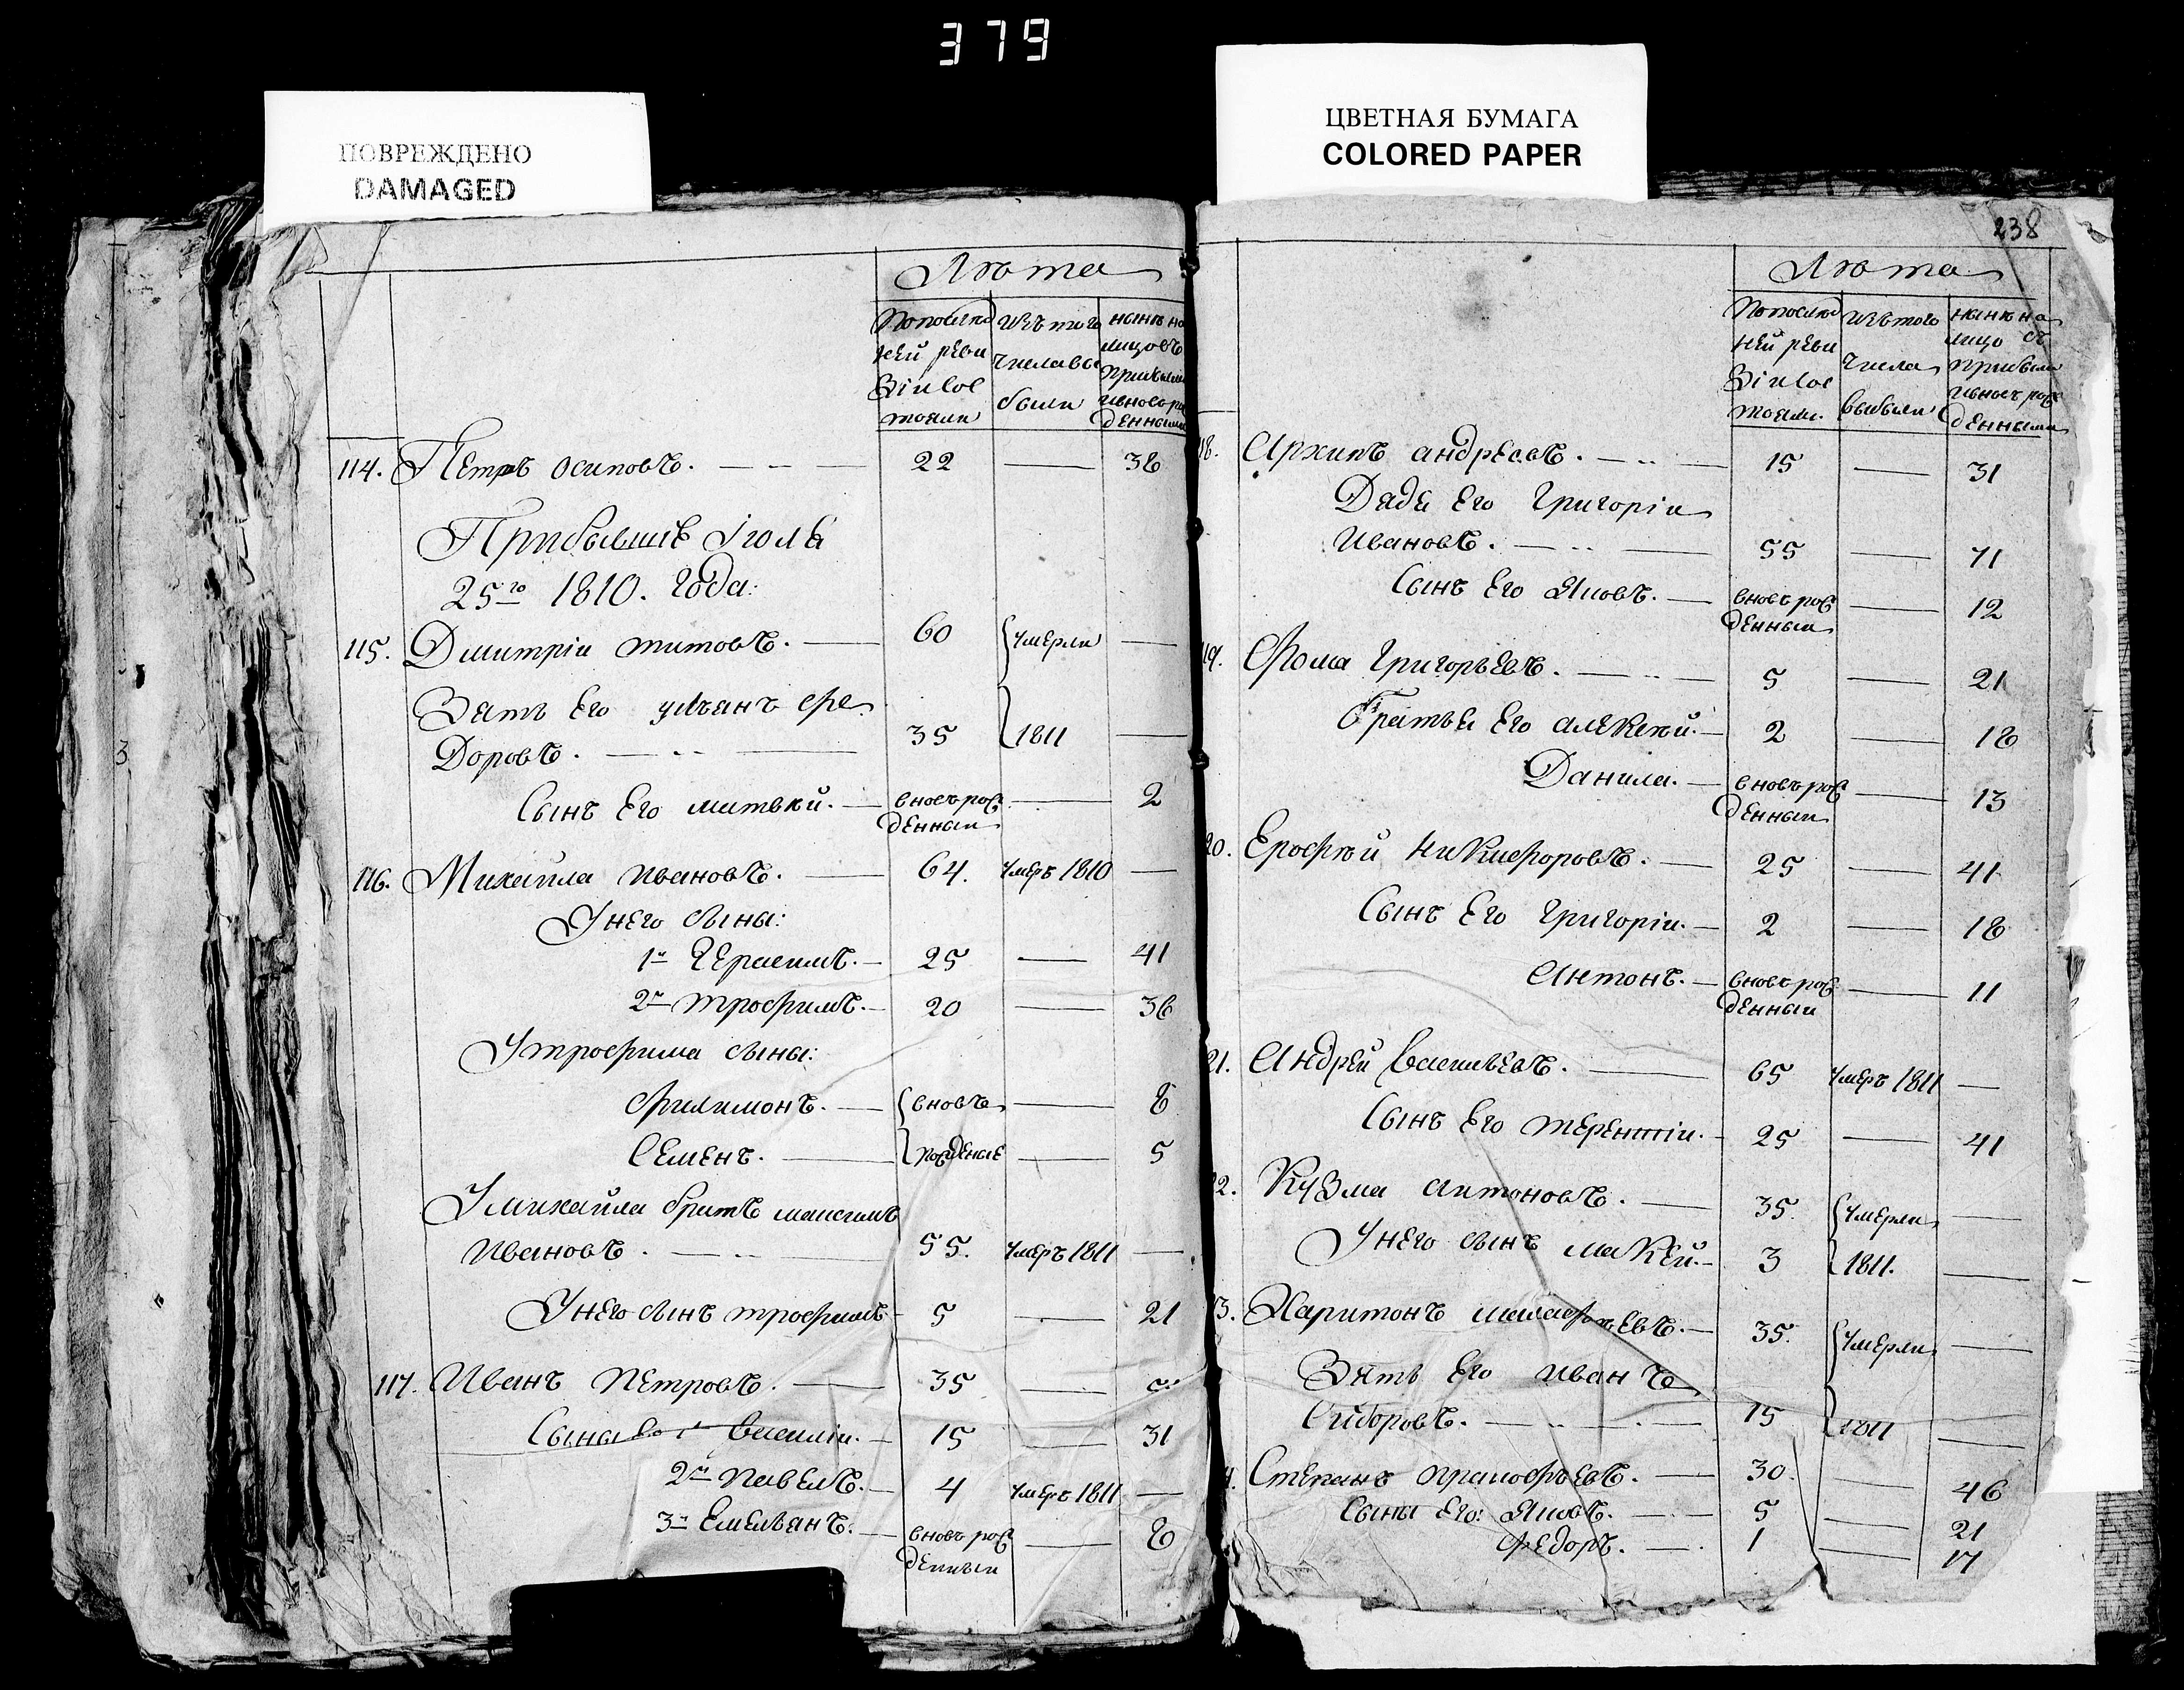 379
ПОВРЕЖДЕНО
DAMAGED
ЦВЕТНАЯ БУМАГА
COLORED PAPER
Лѣта
Попослѣд
ней реви
зіи сос
тояли
изъ того
числа вы
были
нынѣ на
лицо съ
прибылы
и вновь ро
денными
114. Петръ осиповъ. 22 — 38
Прибывшіе Іюля
25го 1810. года:
115. Дмитріи титовъ. 60 умерли —
Зять его ульянъ фе
доровъ. 35 1811 —
Сынъ его матвѣй. вновь рож
денныи — 2
116. Михайла ивановъ. 64. умеръ 1810 —
У него сыны:
1й Герасимъ. 25 — 41
2й трофимъ. 20 — 36
У трофима сыны:
филимонъ. вновь — 8
Семенъ. рожденые — 5
У михайла братъ максимъ
ивановъ. 55. умеръ 1811 —
У него сынъ трофимъ 5 — 21
117. Иванъ петровъ. 35 —
Сыны василіи. 15 — 31
2й павелъ. 4 умеръ 1811 —
3й Емельянъ. вновь рож
денныи — 8
238
Лѣта
Попослѣд
ней реви
зіи сос
тояли.
изъ того
числа
выбыли
нынѣ на
лицо съ
прибылы
и вновь рож
денными
18. Архипъ андреевъ. 15 — 31
Дядя его Григоріи
ивановъ. 55 — 71
Сынъ его Яковъ. вновь рож
денныи — 12
19. Фома Григорьевъ. 5 — 21
Братья его алексѣй. 2 — 18
Данила. вновь рож
денныи — 13
20. Ерофѣй никифоровъ. 25 — 41
Сынъ его Григоріи. 2 — 18
Антонъ. вновь рож
денныи — 11
21. Андрей васильевъ. 65 умеръ 1811 —
Сынъ его терентіи. 25 — 41
22. Кузма антоновъ. 35. умерли —
У него сынъ макей. 3 1811. —
3. Харитонъ 35. умерли —
Зять его иванъ
Сидоровъ. 15 1811 —
4. Степанъ прокофьевъ. 30. — 46
Сыны его: Яковъ. 5 — 21
Федоръ. 1 — 17